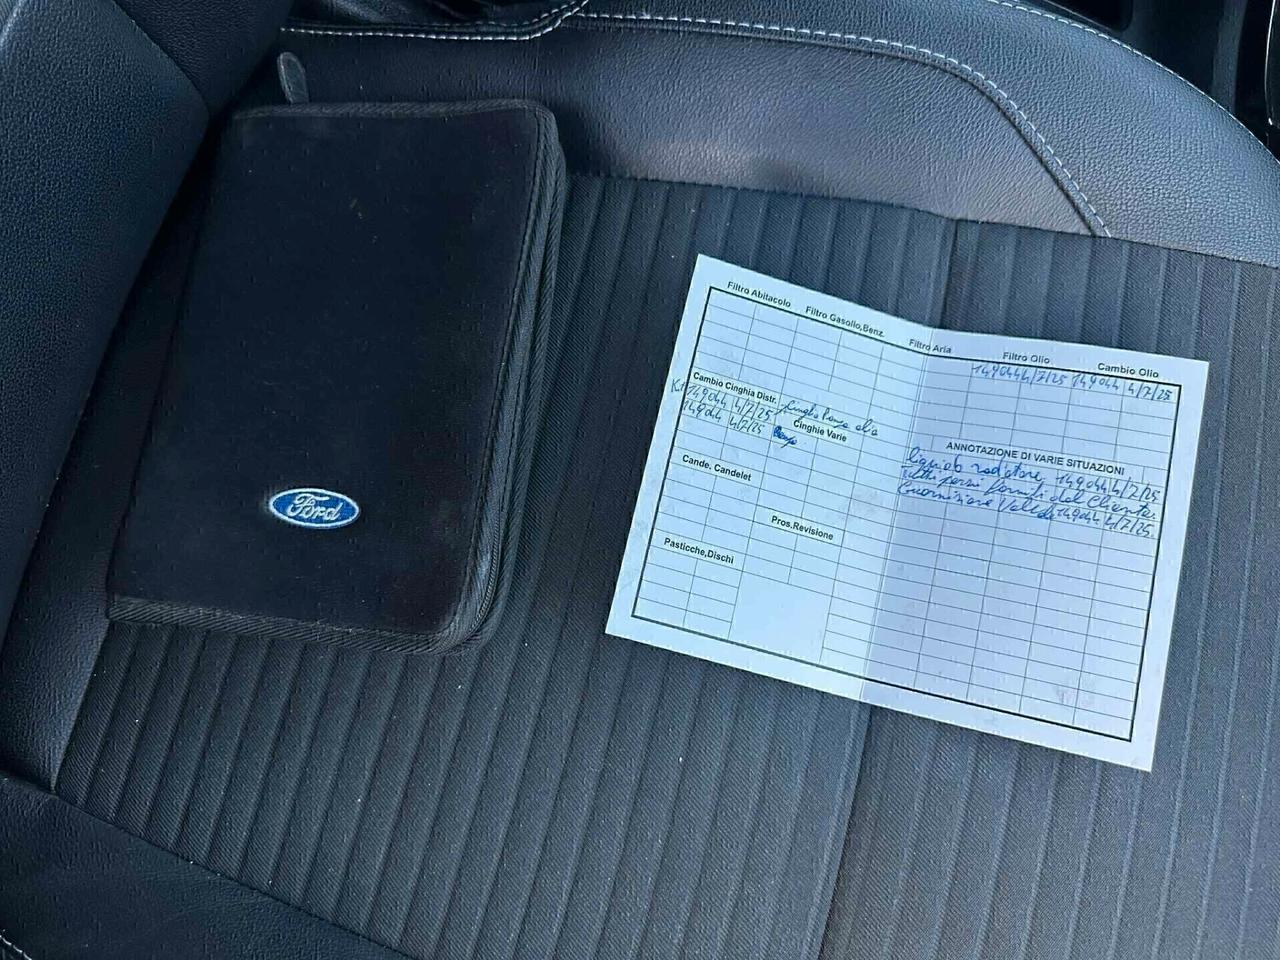 Ford
Filtro Abitacolo
Filtro Gasolio,Benz.
Filtro Aria
Filtro Olio
Cambio Olio
149044 4/7/25 149044 4/7/25
Cambio Cinghia Distr.
149044 4/7/25 Cinghia Pompa olio
149044 4/7/25
Cinghie Varie
Cande, Candelet
Pros,Revisione
Pasticche,Dischi
ANNOTAZIONE DI VARIE SITUAZIONI
radiatore 149044 4/7/25
pezzi forniti dal Cliente
Guarnizione 149044 4/7/25